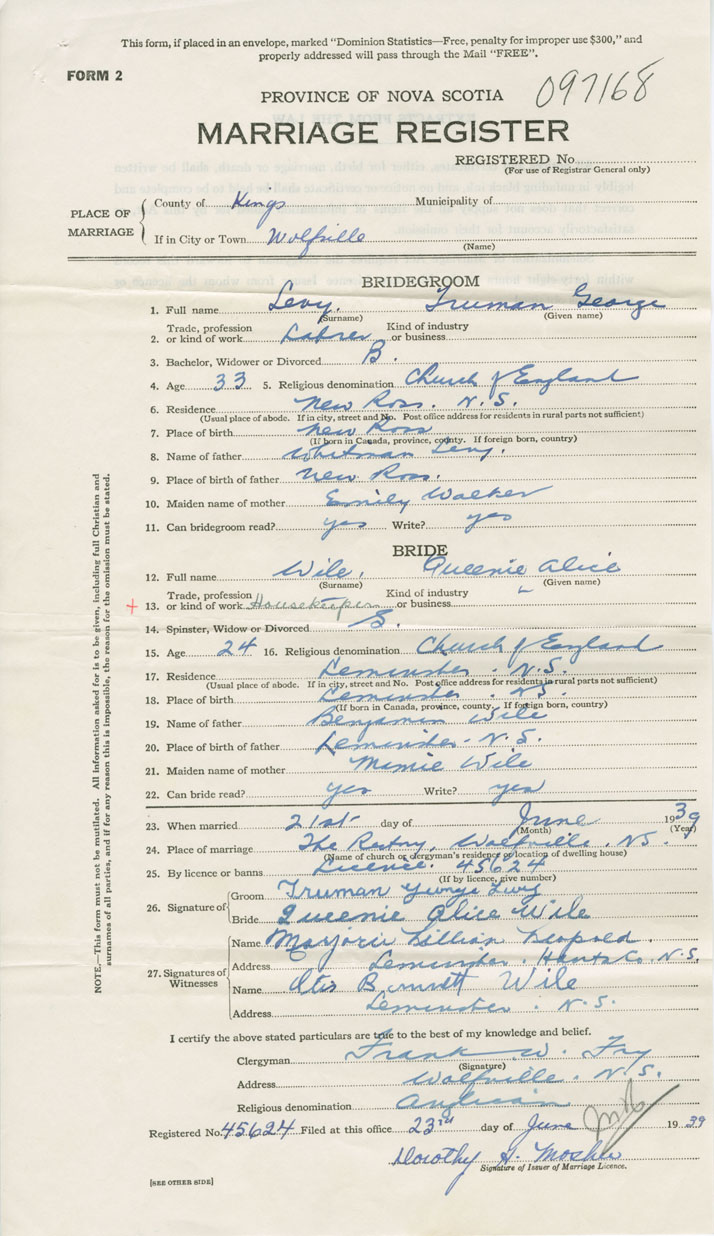 This form, if placed in an envelope, marked "Dominion Statistics—Free, penalty for improper use $300," and
properly addressed will pass through the Mail "FREE".
FORM 2
097168
PROVINCE OF NOVA SCOTIA
MARRIAGE REGISTER
REGISTERED No.
(For use of Registrar General only)
PLACE OF MARRIAGE
County of Kings Municipality of
If in City or Town Wolfville
(Name)
BRIDEGROOM
1. Full name Levy, Truman George
(Surname) (Given name)
2. Trade, profession or kind of work Labrer Kind of industry or business
3. Bachelor, Widower or Divorced B.
4. Age 33 5. Religious denomination Church of England
6. Residence New Ross. N.S.
(Usual place of abode. If in city, street and No. Post office address for residents in rural parts not sufficient)
7. Place of birth New Ross
(If born in Canada, province, county. If foreign born, country)
8. Name of father Whitman Levy.
9. Place of birth of father New Ross.
10. Maiden name of mother Emily Walker
11. Can bridegroom read? yes Write? yes
BRIDE
12. Full name Wile, Queenie Alice
(Surname) (Given name)
+ 13. Trade, profession or kind of work Housekeeper Kind of industry or business
14. Spinster, Widow or Divorced S.
15. Age 24 16. Religious denomination Church of England
17. Residence Leminster. N.S.
(Usual place of abode. If in city, street and No. Post office address for residents in rural parts not sufficient)
18. Place of birth Leminster. N.S.
(If born in Canada, province, county. If foreign born, country)
19. Name of father Benjamin Wile
20. Place of birth of father Leminster. N.S.
21. Maiden name of mother Mimie Wile
22. Can bride read? yes Write? yes
23. When married 21st day of June 1939
(Month) (Year)
24. Place of marriage The Rectory, Wolfville, N.S.
(Name of church or clergyman's residence or location of dwelling house)
25. By licence or banns Licence. 45624
(If by licence, give number)
26. Signature of Groom Truman George Levy
Bride Queenie Alice Wile
27. Signatures of Witnesses
Name Marjorie Lillian Leopold.
Address Leminster. Hants Co. N.S.
Name Otis Burnett Wile
Address Leminster. N.S.
I certify the above stated particulars are true to the best of my knowledge and belief.
Clergyman Frank W. Fry
(Signature)
Address Wolfville. N.S.
Religious denomination Anglican
Registered No. 45624 Filed at this office 23rd day of June 1939
Dorothy H. Mosher
Signature of Issuer of Marriage Licence.
[SEE OTHER SIDE]
NOTE.—This form must not be mutilated. All information asked for is to be given, including full Christian and
surnames of all parties, and if for any reason this is impossible, the reason for the omission must be stated.